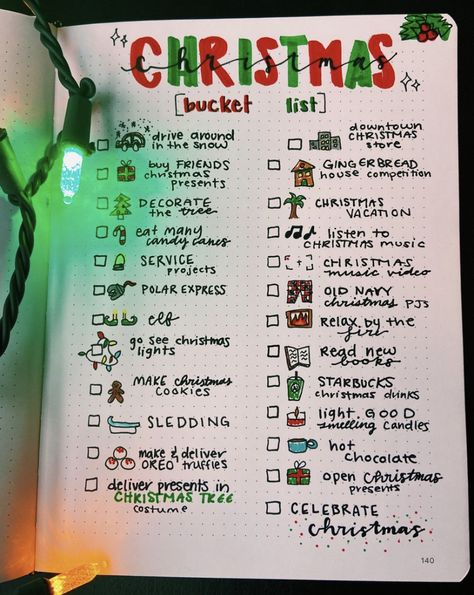 CHRISTMAS
christmas
[bucket list]
drive around
in the snow
buy FRIENDS
christmas
presents
DECORATE
the tree
eat many
candy canes
SERVICE
projects
POLAR EXPRESS
elf
go see christmas
lights
MAKE christmas
COOKIES
SLEDDING
make & deliver
OREO truffles
deliver presents in
CHRISTMAS TREE
costume
downtown
CHRISTMAS
store
GINGERBREAD
house competition
CHRISTMAS
VACATION
listen to
CHRISTMAS music
CHRISTMAS
music video
OLD NAVY
christmas PJs
RELAX by the
fire
Read new
books
STARBUCKS
christmas drinks
light GOOD
smelling candles
hot
chocolate
open christmas
presents
CELEBRATE
christmas
140